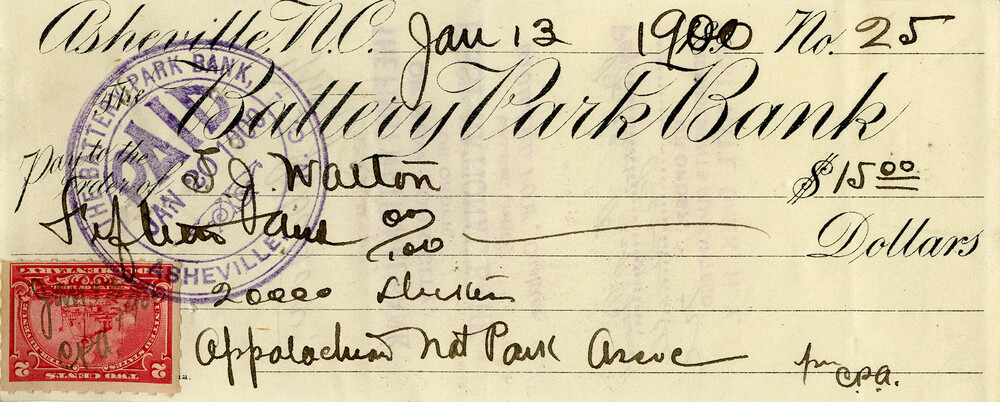 Asheville, N.C. Jan 13 1900 No. 25
The Battery Park Bank
Pay to the
order of J. Walton $15.00
Fifteen and 00/100 Dollars
20000
Appalachian Nat Park Assoc
per C.P.A.
THE BATTERY PARK BANK,
PAID
JAN 1900
ASHEVILLE,
DOCUMENTARY
TWO CENTS
2 2